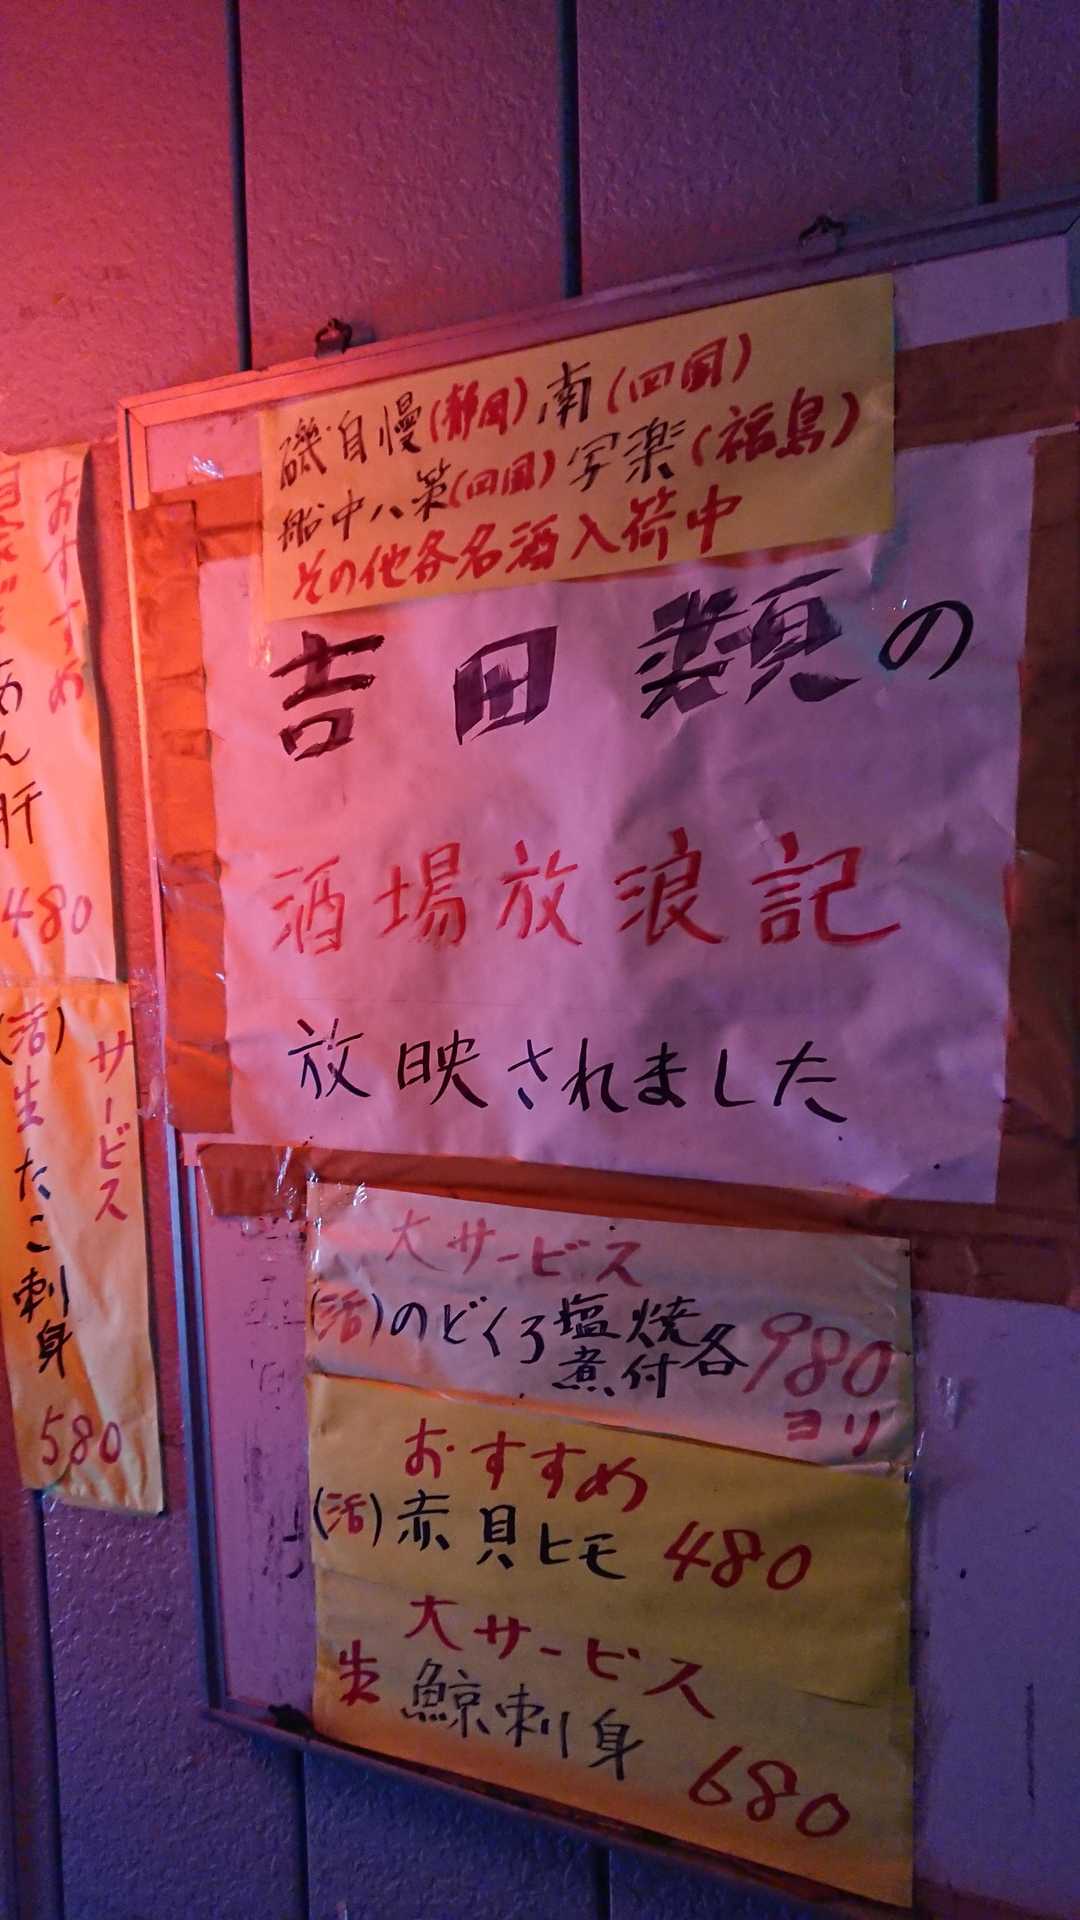 磯自慢(静岡)南(四国)
船中八策(四国)写楽(福島)
その他各名酒入荷中
吉田類の
酒場放浪記
放映されました
大サービス
(活)のどくろ塩焼
煮付各980
ヨリ
おすすめ
(活)赤貝ヒモ 480
大サービス
生鯨刺身
680
おすすめ
自家製
あん肝
480
サービス
(活)生たこ刺身
580